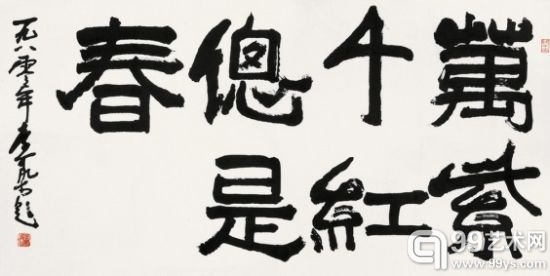 萬紫
千紅
總是
春
一九八零年
99艺术网
www.99ys.com